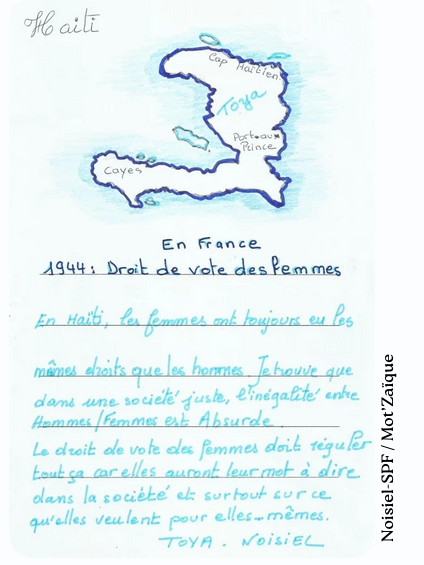 Haïti
Cap Haïtien
Toya
Port-au-
Prince
Cayes
En France
1944 : Droit de vote des femmes
En Haïti, les femmes ont toujours eu les
mêmes droits que les hommes. Je trouve que
dans une société juste, l'inégalité entre
Hommes/Femmes est Absurde.
Le droit de vote des femmes doit réguler
tout ça car elles auront leur mot à dire
dans la société et surtout sur ce
qu'elles veulent pour elles-mêmes.
TOYA. NOISIEL
Noisiel-SPF / Mot'Zaïque